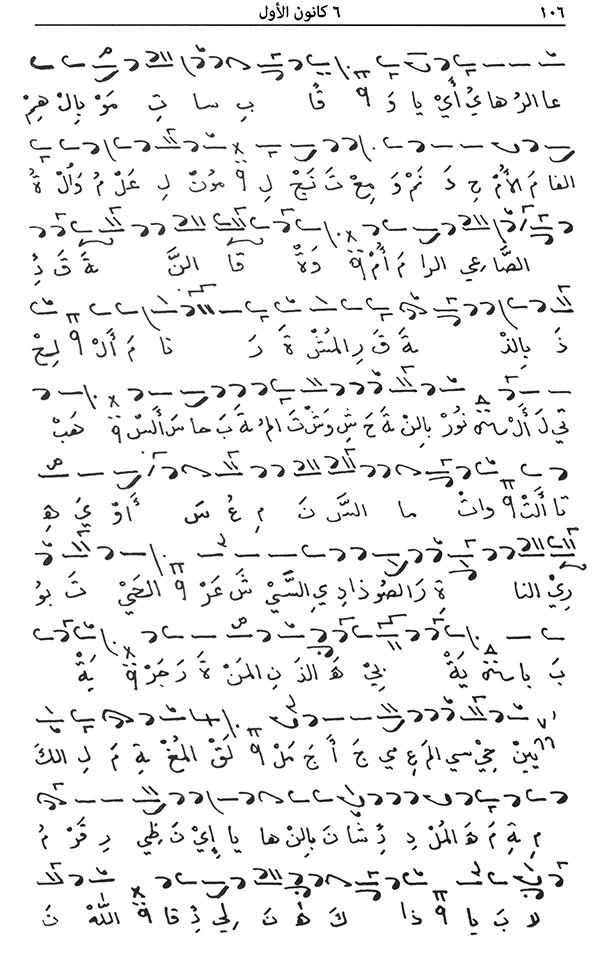 ١٠٦ ٦ كانون الأول
عا الرُ هايُ أَيْ يا دَ قًا بِ سا تِ مَوْ بِالْ هِرْ
الفا مَ الأُمْ حِ دَ نَمْ وَ مِعْ تَ نَجْ لِ مُونْ لِ عَلْ مُ وَأُلْ ةُ
الصَّا عي الرا مَ أُمْ وَةْ قا النَّ ةَ قَ ذُ
ذَ بِالنْ ةَ قَ رِ المُشْ ةَ رَ تا مَ أَلْ لِحْ
تي لَ أَلْ نُورْ بِالنْ ةَ حَ شِ وَشْ تَ المُ ةَ بَ حا سَ أَلسْ هَبْ
تا أَلتْ واتْ ما السَّ نَ مِ عُ سَ أَوْ يَ هِ
رِيْ النا ةَ رَ الصُو ذا دِي السَّيْ شَ عَرْ الحَيْ تَ بُو
بَ با يَةْ لِحْ هَ الذَ نِ المَنْ ةَ رَ جَرْ يَةْ
يِينْ حِيْ سي المَ عِ مي جَ أَ جَ مَلْ لَقْ المُغْ ةِ مَ لِ الكَ
مِ ةِ مَ هَ المُلْ دِ ذِ شا نَ بالِنْ ها يا إِيْ نَ ظِي رِ قَرْ مُ
لا بَ يا ذا كَ هٰ نَ لِي ذِ قا اللهْ نَ